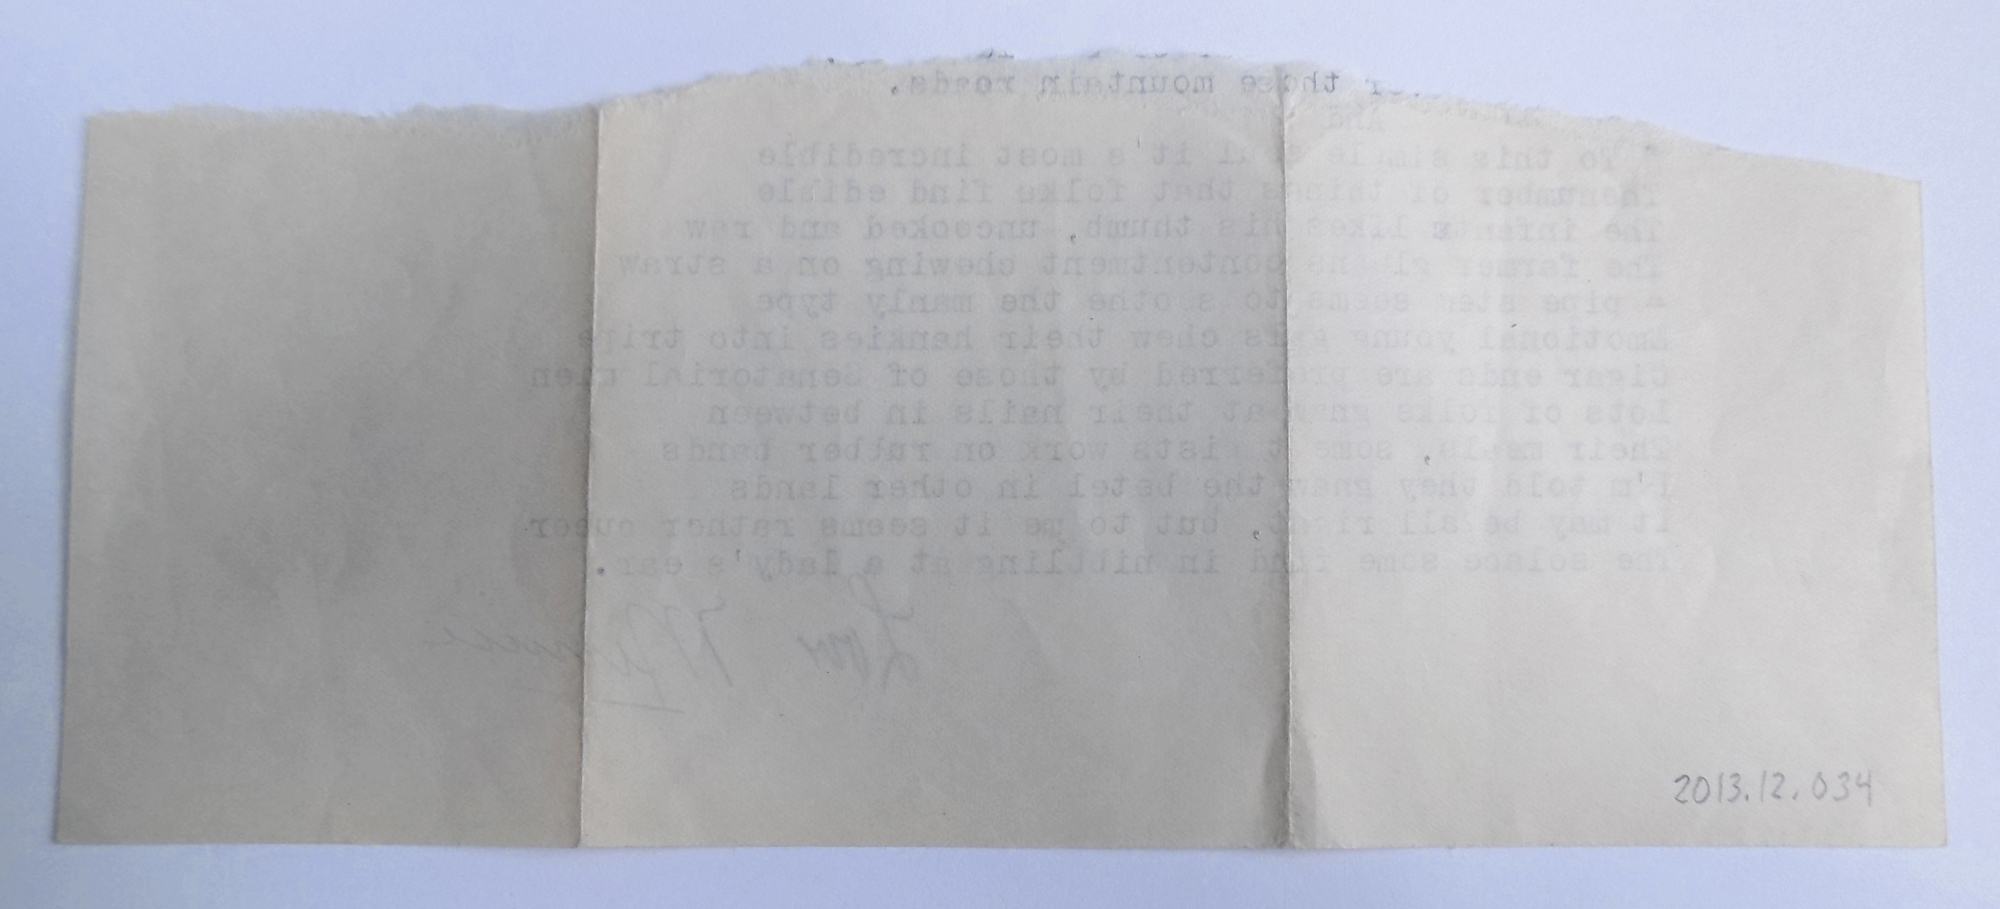 those mountain roads.
And
To this simple it's most incredible
Thenumber of things that folks find edible
The infants likes his thumb, uncooked and raw
The farmer gleans contentment chewing on a straw
pipe stem seems to soothe the manly type
Emotional young chew their hankies into tripe
Cigar ends are preferred by those of Senatorial mien
Lots of folks gnaw at their nails in between
Their meals, some work on rubber bands
I'm told they gnaw the betel in other lands
It may be all right, but to me it seems rather queer
The solace some find in nibbling at a lady's ear.
Lou
2013.12.034